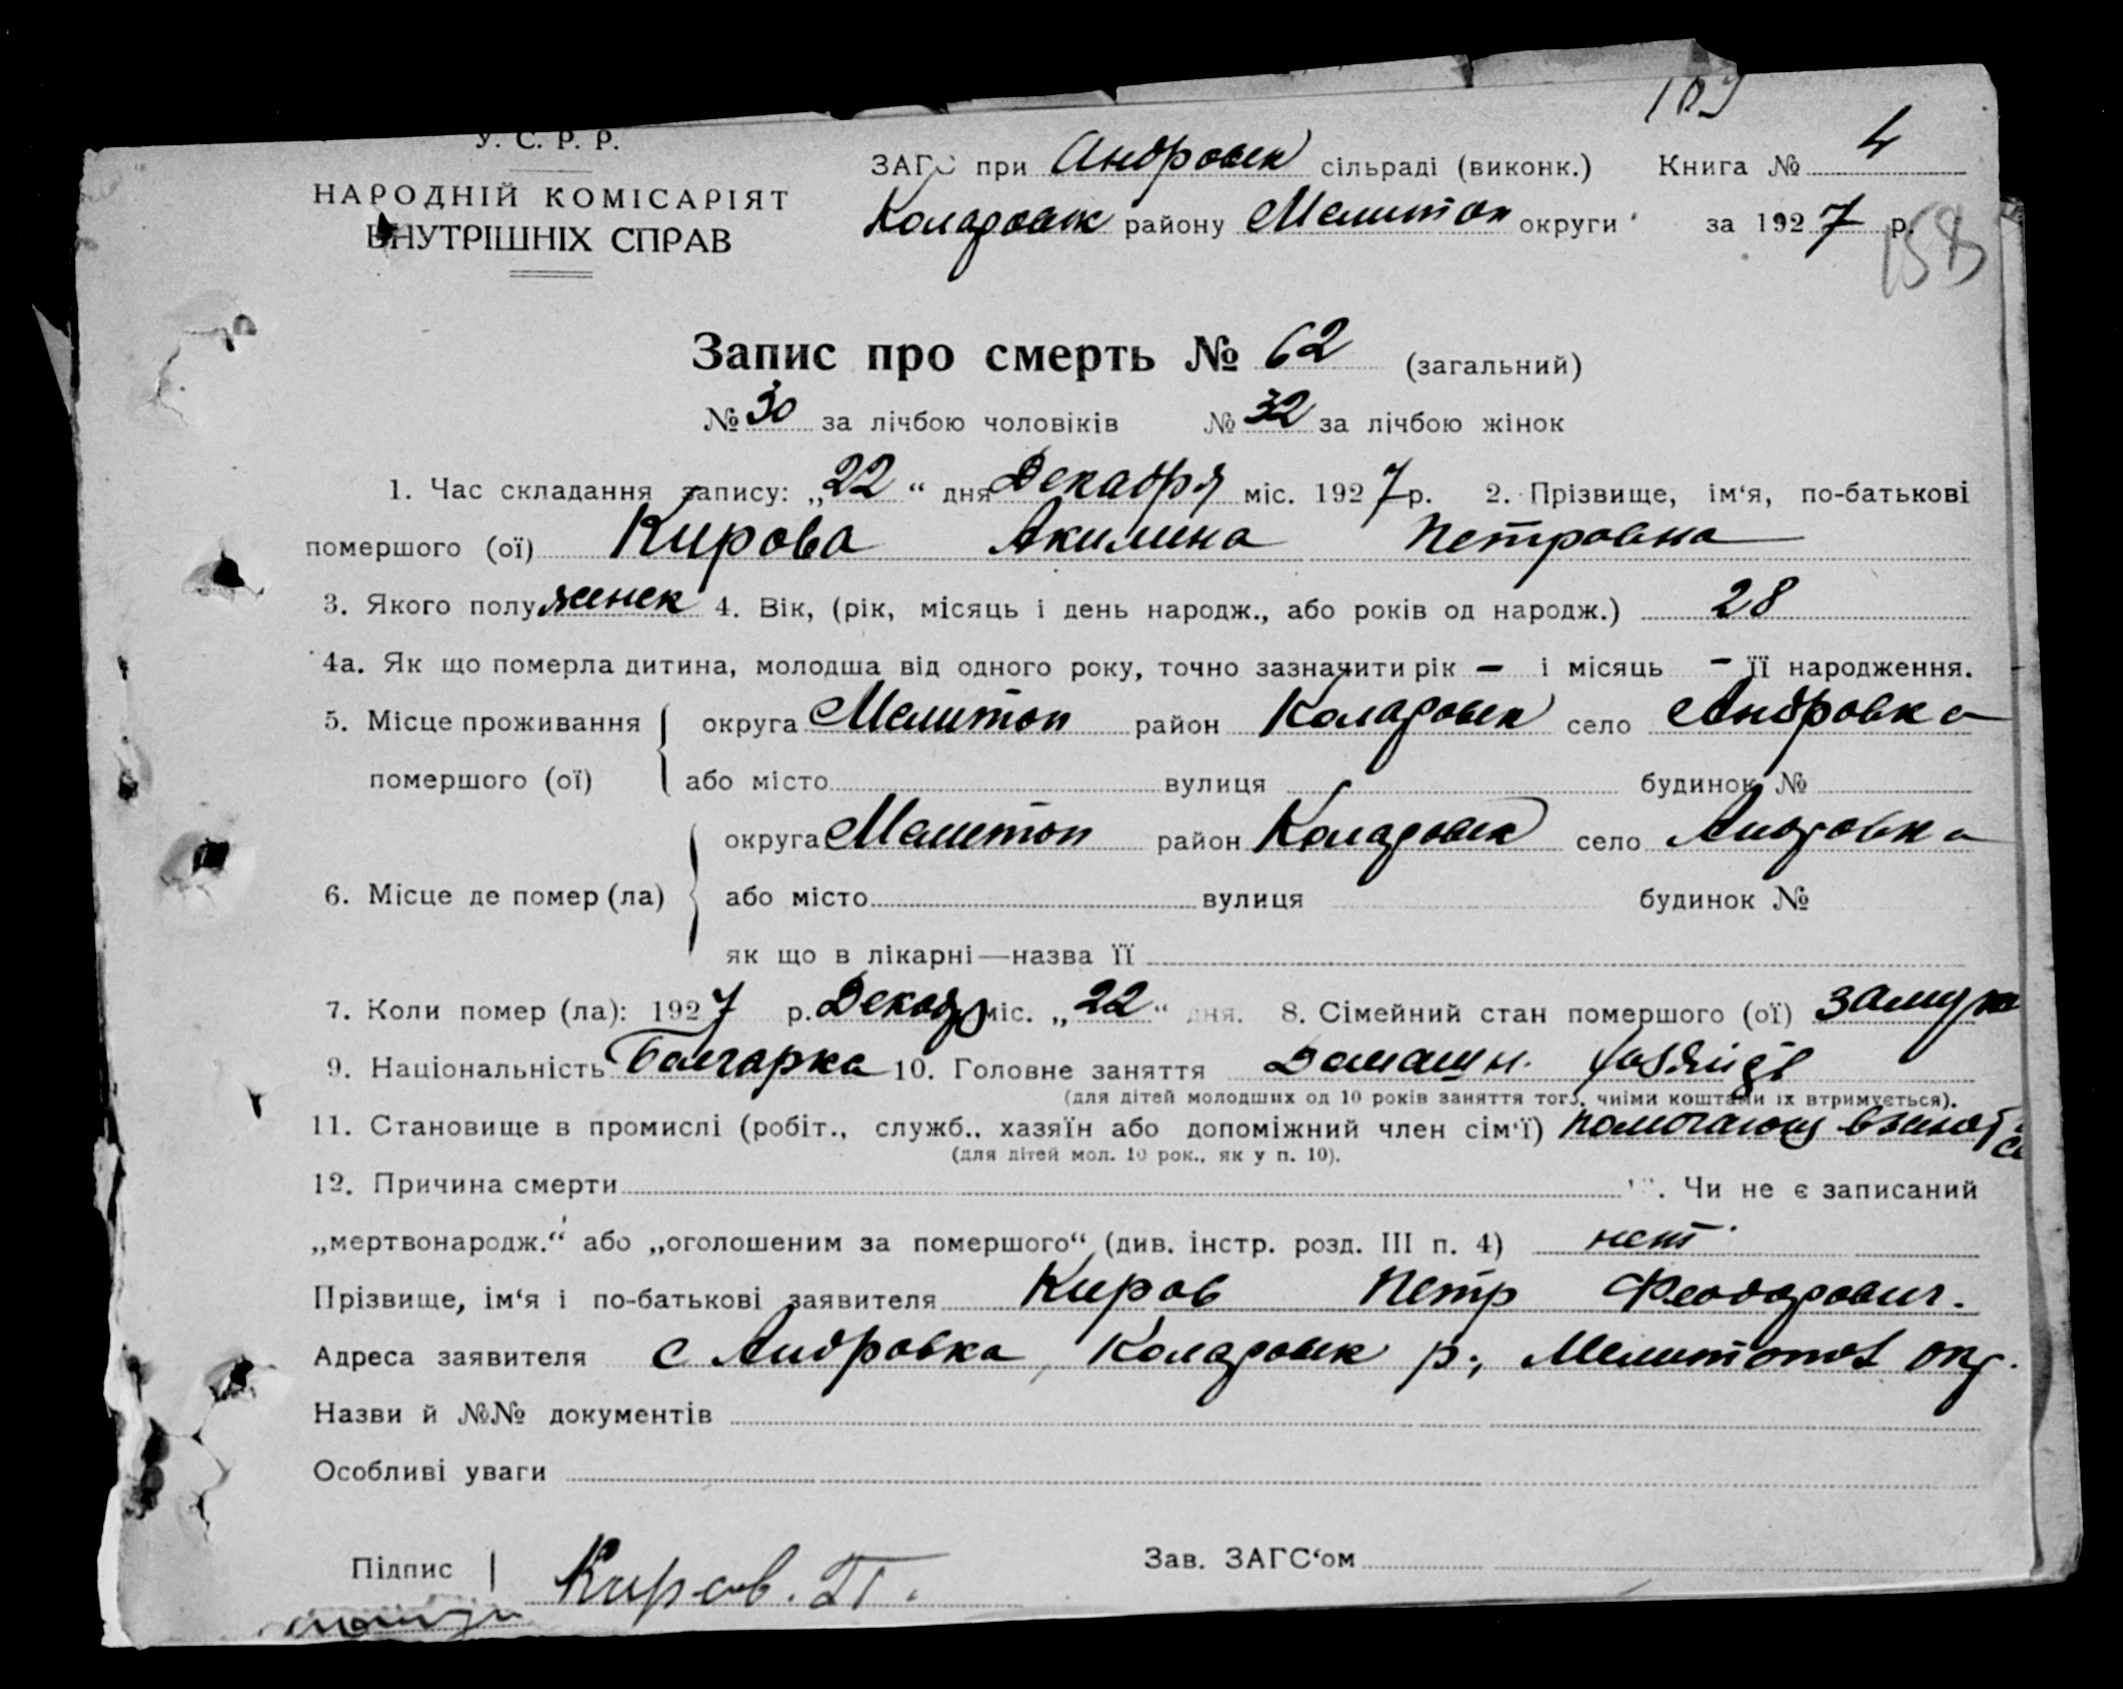 У. С. Р. Р.
НАРОДНІЙ КОМІСАРІЯТ
ВНУТРІШНІХ СПРАВ
ЗАГС при Андровск сільраді (виконк.) Книга № 4
Коларовск району Мелитоп округи за 1927 р.
158
Запис про смерть № 62 (загальний)
№ 30 за лічбою чоловіків № 32 за лічбою жінок
1. Час складання запису: „22“ дня Декабря міс. 1927 р. 2. Прізвище, ім‘я, по-батькові
помершого (ої) Кирова Акилина Петровна
3. Якого полу женск 4. Вік, (рік, місяць і день народж., або років од народж.) 28
4а. Як що померла дитина, молодша від одного року, точно зазначити рік – і місяць – її народження.
5. Місце проживання помершого (ої) округа Мелитоп район Коларовск село Андровка
або місто вулиця будинок №
6. Місце де помер (ла) округа Мелитоп район Коларовск село Андровка
або місто вулиця будинок №
як що в лікарні—назва її
7. Коли помер (ла): 1927 р. Декабр міс. „22“ дня. 8. Сімейний стан помершого (ої) замуж
9. Національність Болгарка 10. Головне заняття Домашн.
(для дітей молодших од 10 років заняття того, чиїми коштами їх втримується).
11. Становище в промислі (робіт., служб., хазяїн або допоміжний член сім‘ї) помогающ
(для дітей мол. 10 рок., як у п. 10).
12. Причина смерти Чи не є записаний
„мертвонародж.“ або „оголошеним за помершого“ (див. інстр. розд. III п. 4) нет
Прізвище, ім‘я і по-батькові заявителя Киров Петр Феодорович.
Адреса заявителя с Андровка, Коларовск р., Мелитопол окр.
Назви й №№ документів
Особливі уваги
Підпис Киров. П. Зав. ЗАГС‘ом